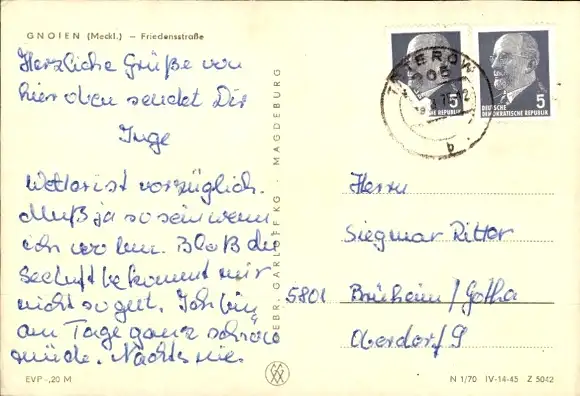 GNOIEN (Meckl.) – Friedensstraße
Herzliche Grüße von
hier oben sendet Dir
Inge
Wetter ist vorzüglich.
Muß ja so sein wenn
ich verreise. Bloß die
Seeluft bekommt mir
nicht so gut. Ich bin
am Tage ganz schön
müde. Nachts nie.
EVP -,20 M
GEBR. GARLOFF KG · MAGDEBURG
TETEROW
205
b
5
DEUTSCHE
DEMOKRATISCHE REPUBLIK
5
DEUTSCHE
DEMOKRATISCHE REPUBLIK
Herrn
Siegmar Ritter
5801 Brüheim / Gotha
Oberdorf 9
N 1/70 IV-14-45 Z 5042